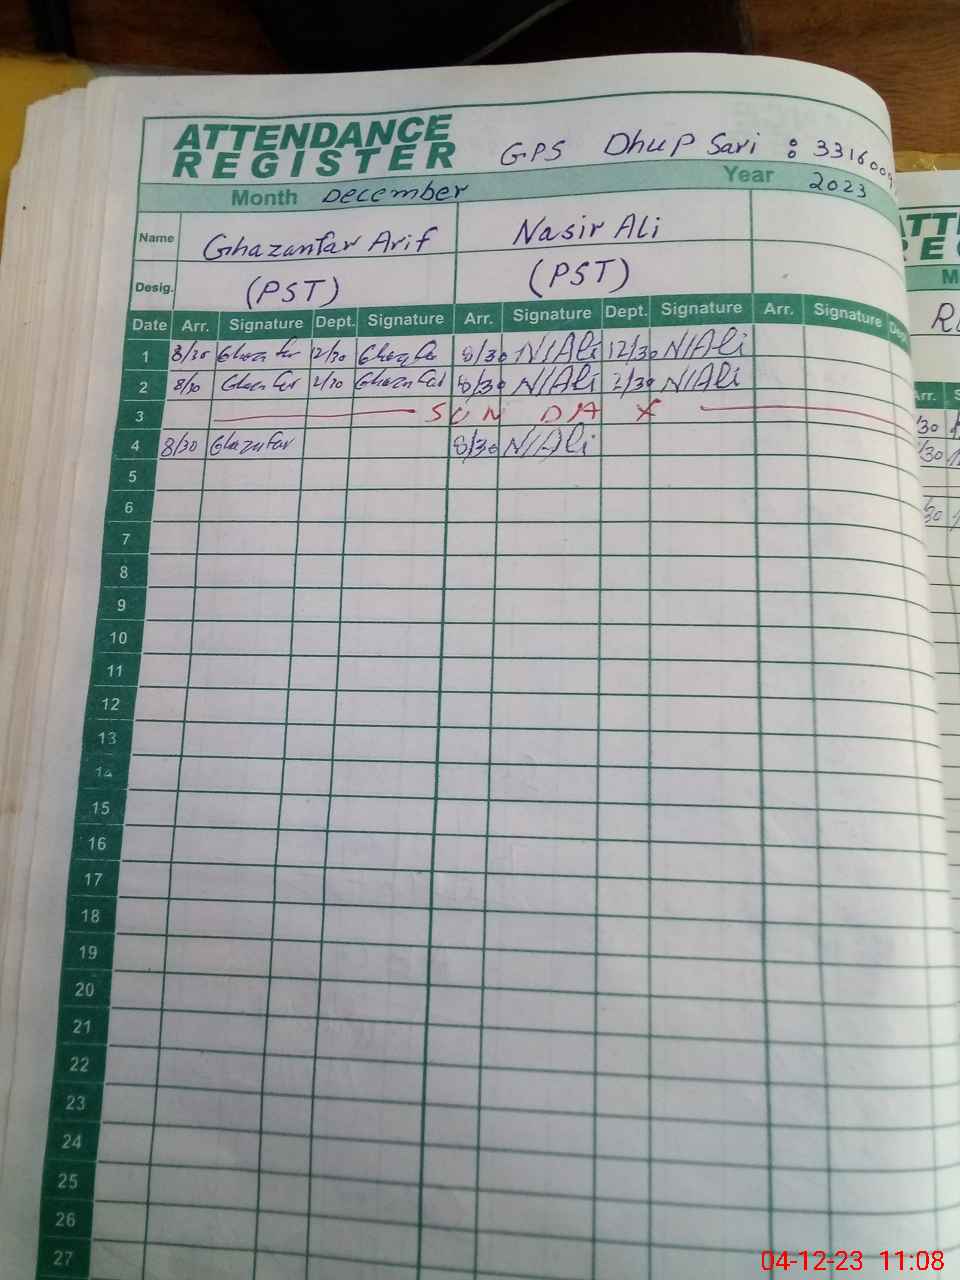 ATTENDANCE
REGISTER
GPS Dhup Sari : 331600
Month December Year 2023
Name Ghazanfar Arif Nasir Ali
Desig. (PST) (PST)
Date Arr. Signature Dept. Signature Arr. Signature Dept. Signature Arr. Signature Dept
1 8/30 Ghazanfar 12/30 Ghazanfar 8/30 N/Ali 12/30 N/Ali
2 8/30 Ghazanfar Ghazanfar 8/30 N/Ali N/Ali
3 SUN DAY
4 8/30 Ghazanfar 8/30 N/Ali
5
6
7
8
9
10
11
12
13
14
15
16
17
18
19
20
21
22
23
24
25
26
27
04-12-23 11:08